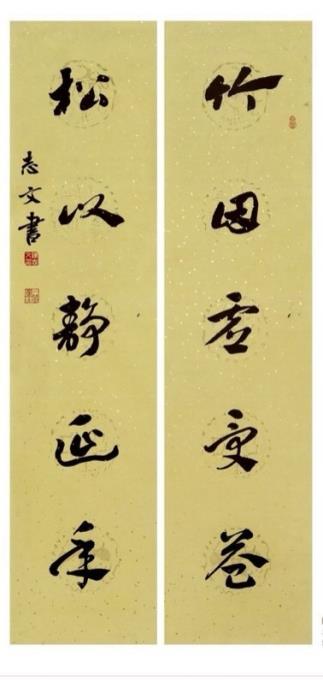 竹因虚受益
松以静延年
志文書